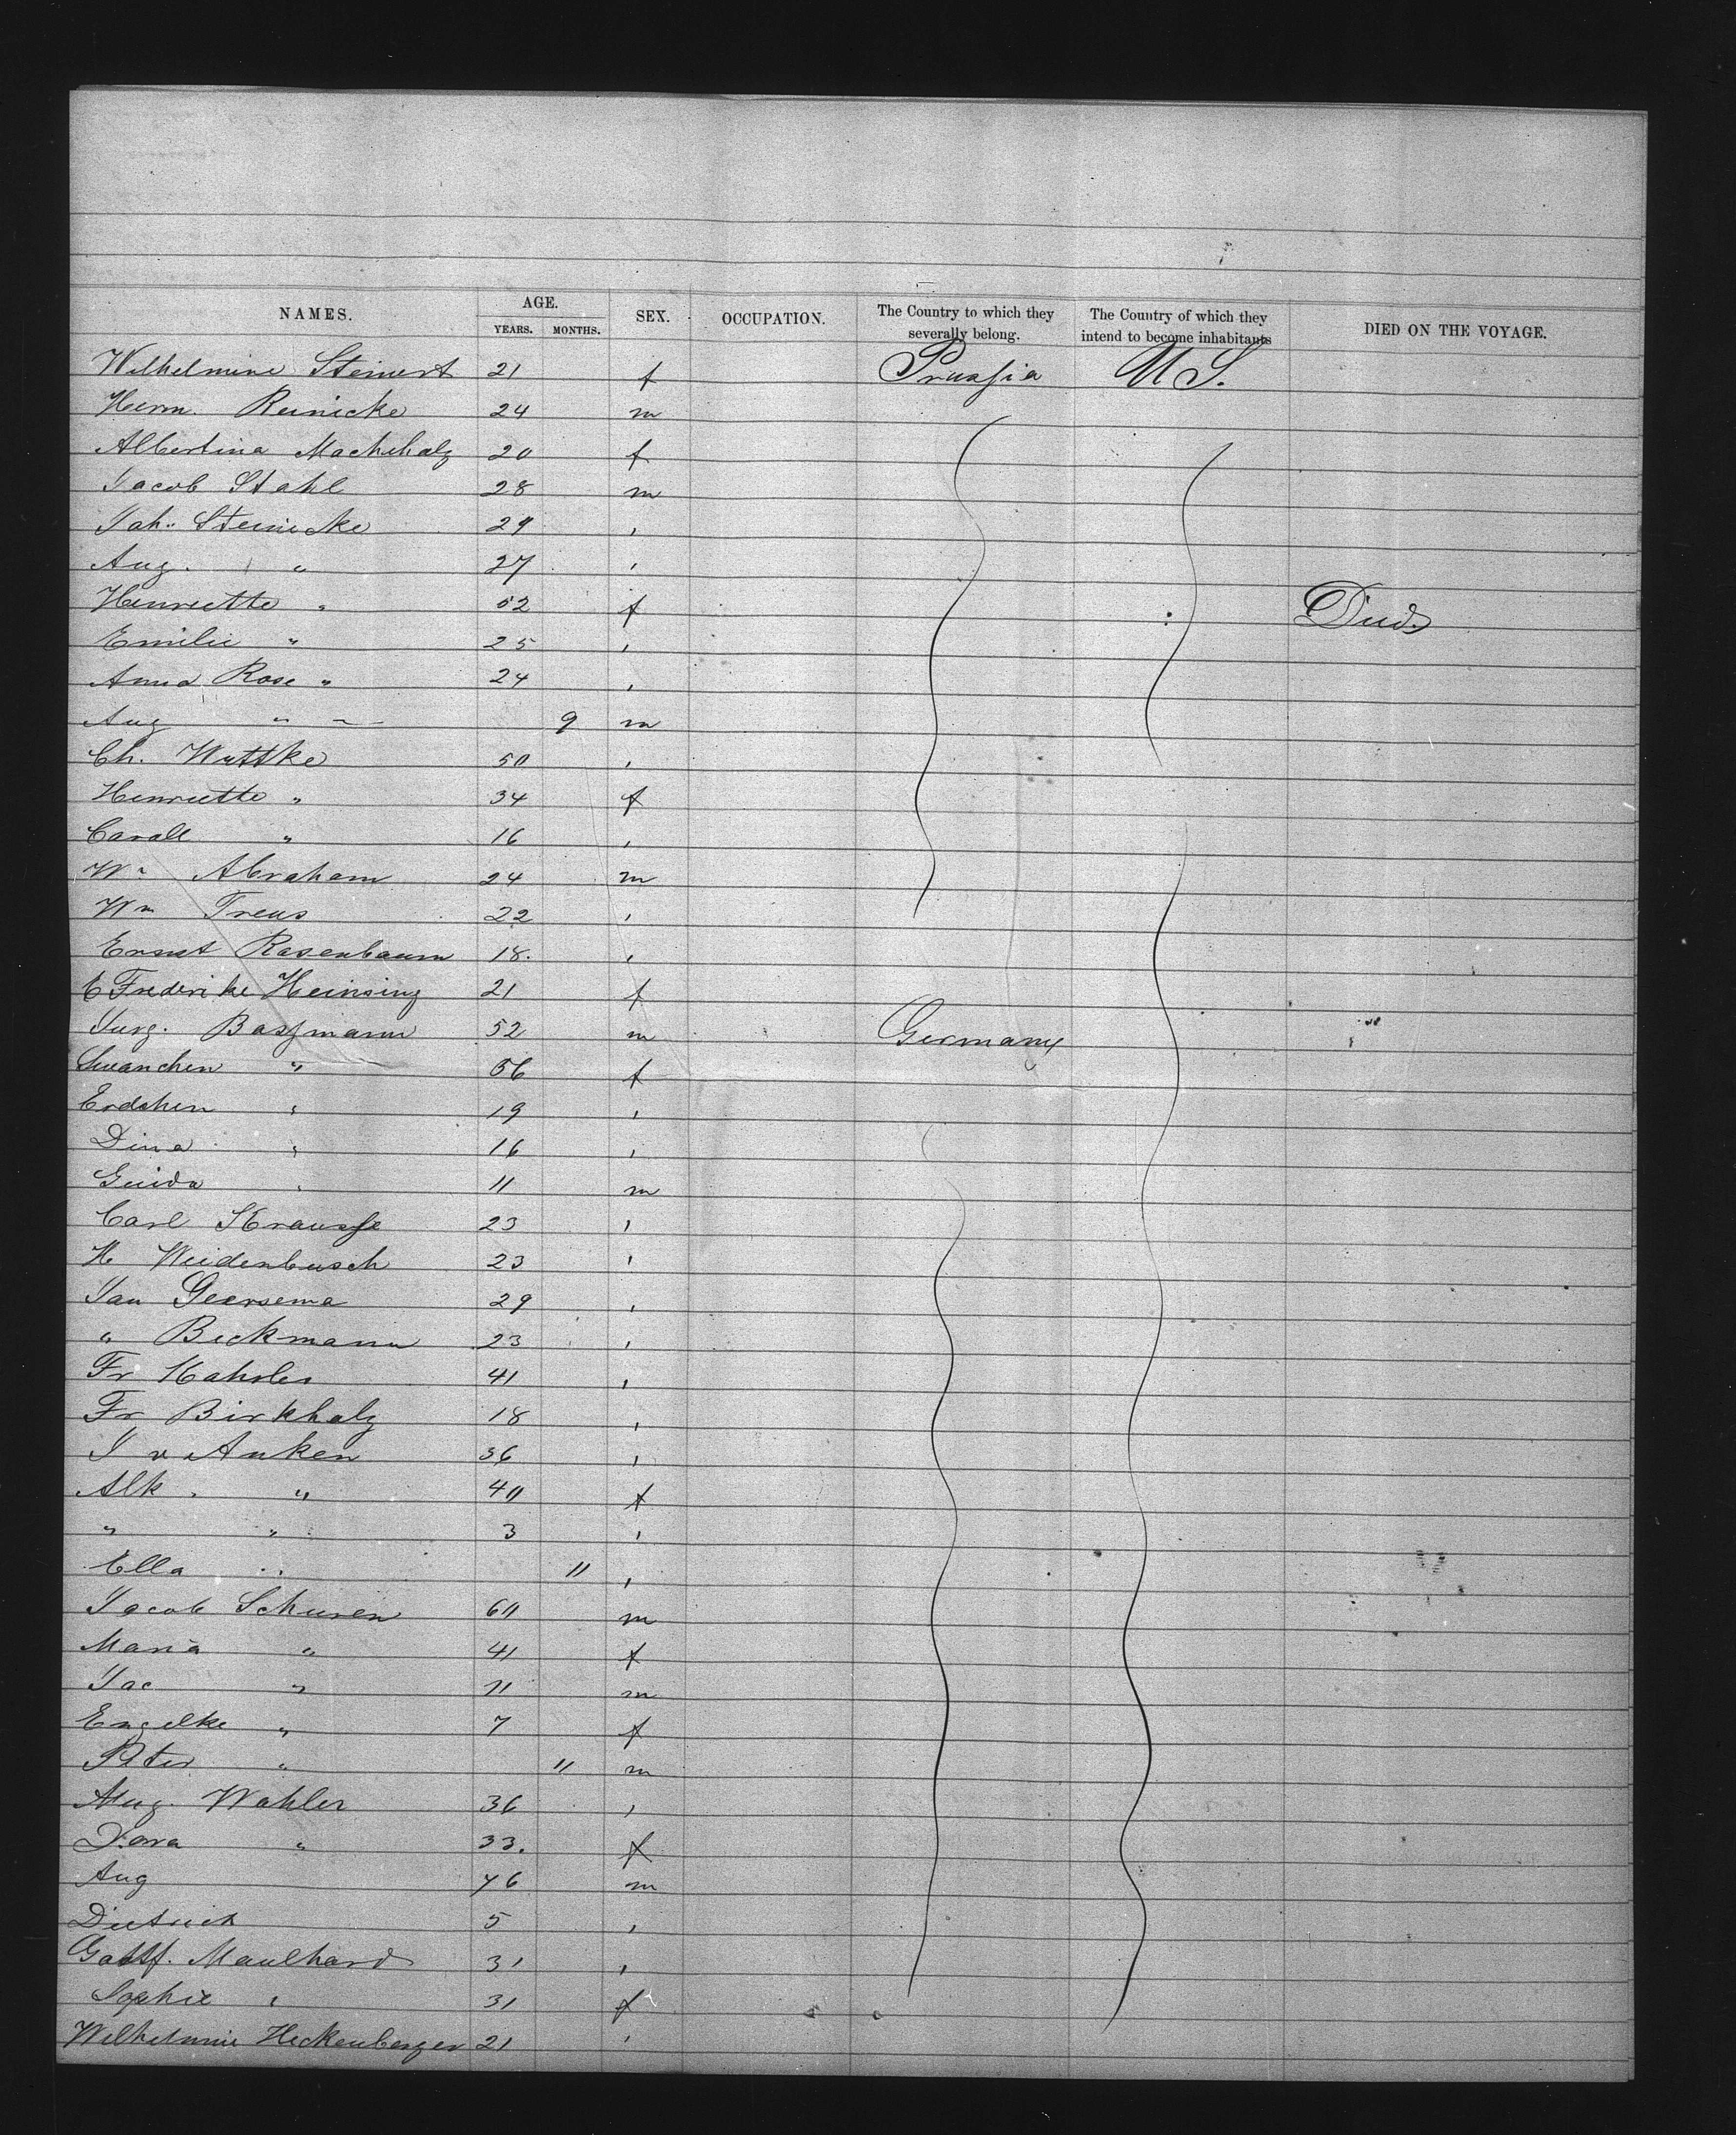 NAMES. AGE. YEARS. MONTHS. SEX. OCCUPATION. The Country to which they severally belong. The Country of which they intend to become inhabitants DIED ON THE VOYAGE.
Wilhelmine Steinert 21 f Prussia U S.
Herm. Reinicke 24 m
Albertina Macheholz 20 f
Jacob Stahl 28 m
Joh. Steinicke 29 "
Aug. " 27 "
Henriette " 52 f Died
Emilie " 25 "
Anna Rose " 24 "
Aug " 9 m
Ch. Wuttke 50 "
Henriette " 34 f
Caroll " 16 "
Wm Abraham 24 m
Wm Treus 22 "
Ernst Rosenbaum 18. "
C Frederike Heinsing 21 f
Jurg. Bassmann 52 m Germany
Swanchen " 56 f
Erdchen " 19 "
Dina " 16 "
Guida " 11 m
Carl Krausse 23 "
H Weidenbusch 23 "
Jan Geersema 29 "
" Beckmann 23 "
Fr Kahrles 41 "
Fr Birkholz 18 "
J v Anken 36 "
Alk. " 40 f
" " 3 "
Ella " 11 "
Jacob Schuren 60 m
Maria " 41 f
Jac " 11 m
Engelke " 7 f
Peter " 11 m
Aug. Wohler 36 "
Dora " 33. f
Aug m
Dietrich 5 "
Gottf. Maulhard 31 "
Sophie " 31 f
Wilhelmine Heckenberger 21 "